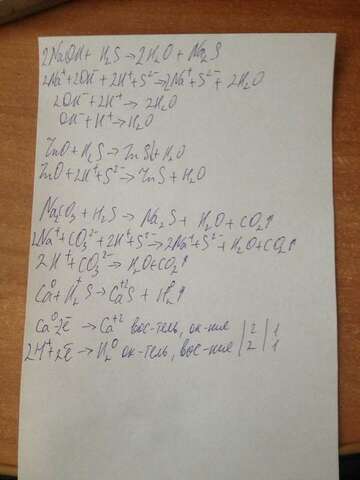 2NaOH + H₂S → 2H₂O + Na₂S
2Na⁺ + 2OH⁻ + 2H⁺ + S²⁻ → 2Na⁺ + S²⁻ + 2H₂O
2OH⁻ + 2H⁺ → 2H₂O
OH⁻ + H⁺ → H₂O
ZnO + H₂S → ZnS↓ + H₂O
ZnO + 2H⁺ + S²⁻ → ZnS + H₂O
Na₂CO₃ + H₂S → Na₂S + H₂O + CO₂↑
2Na⁺ + CO₃²⁻ + 2H⁺ + S²⁻ → 2Na⁺ + S²⁻ + H₂O + CO₂↑
2H⁺ + CO₃²⁻ → H₂O + CO₂↑
Ca⁰ + H₂⁺S → Ca⁺²S + H₂⁰↑
Ca⁰ - 2ē → Ca⁺² вос-тель, ок-ние | 2 | 1
2H⁺ + 2ē → H₂⁰ ок-тель, вос-ние | 2 | 1